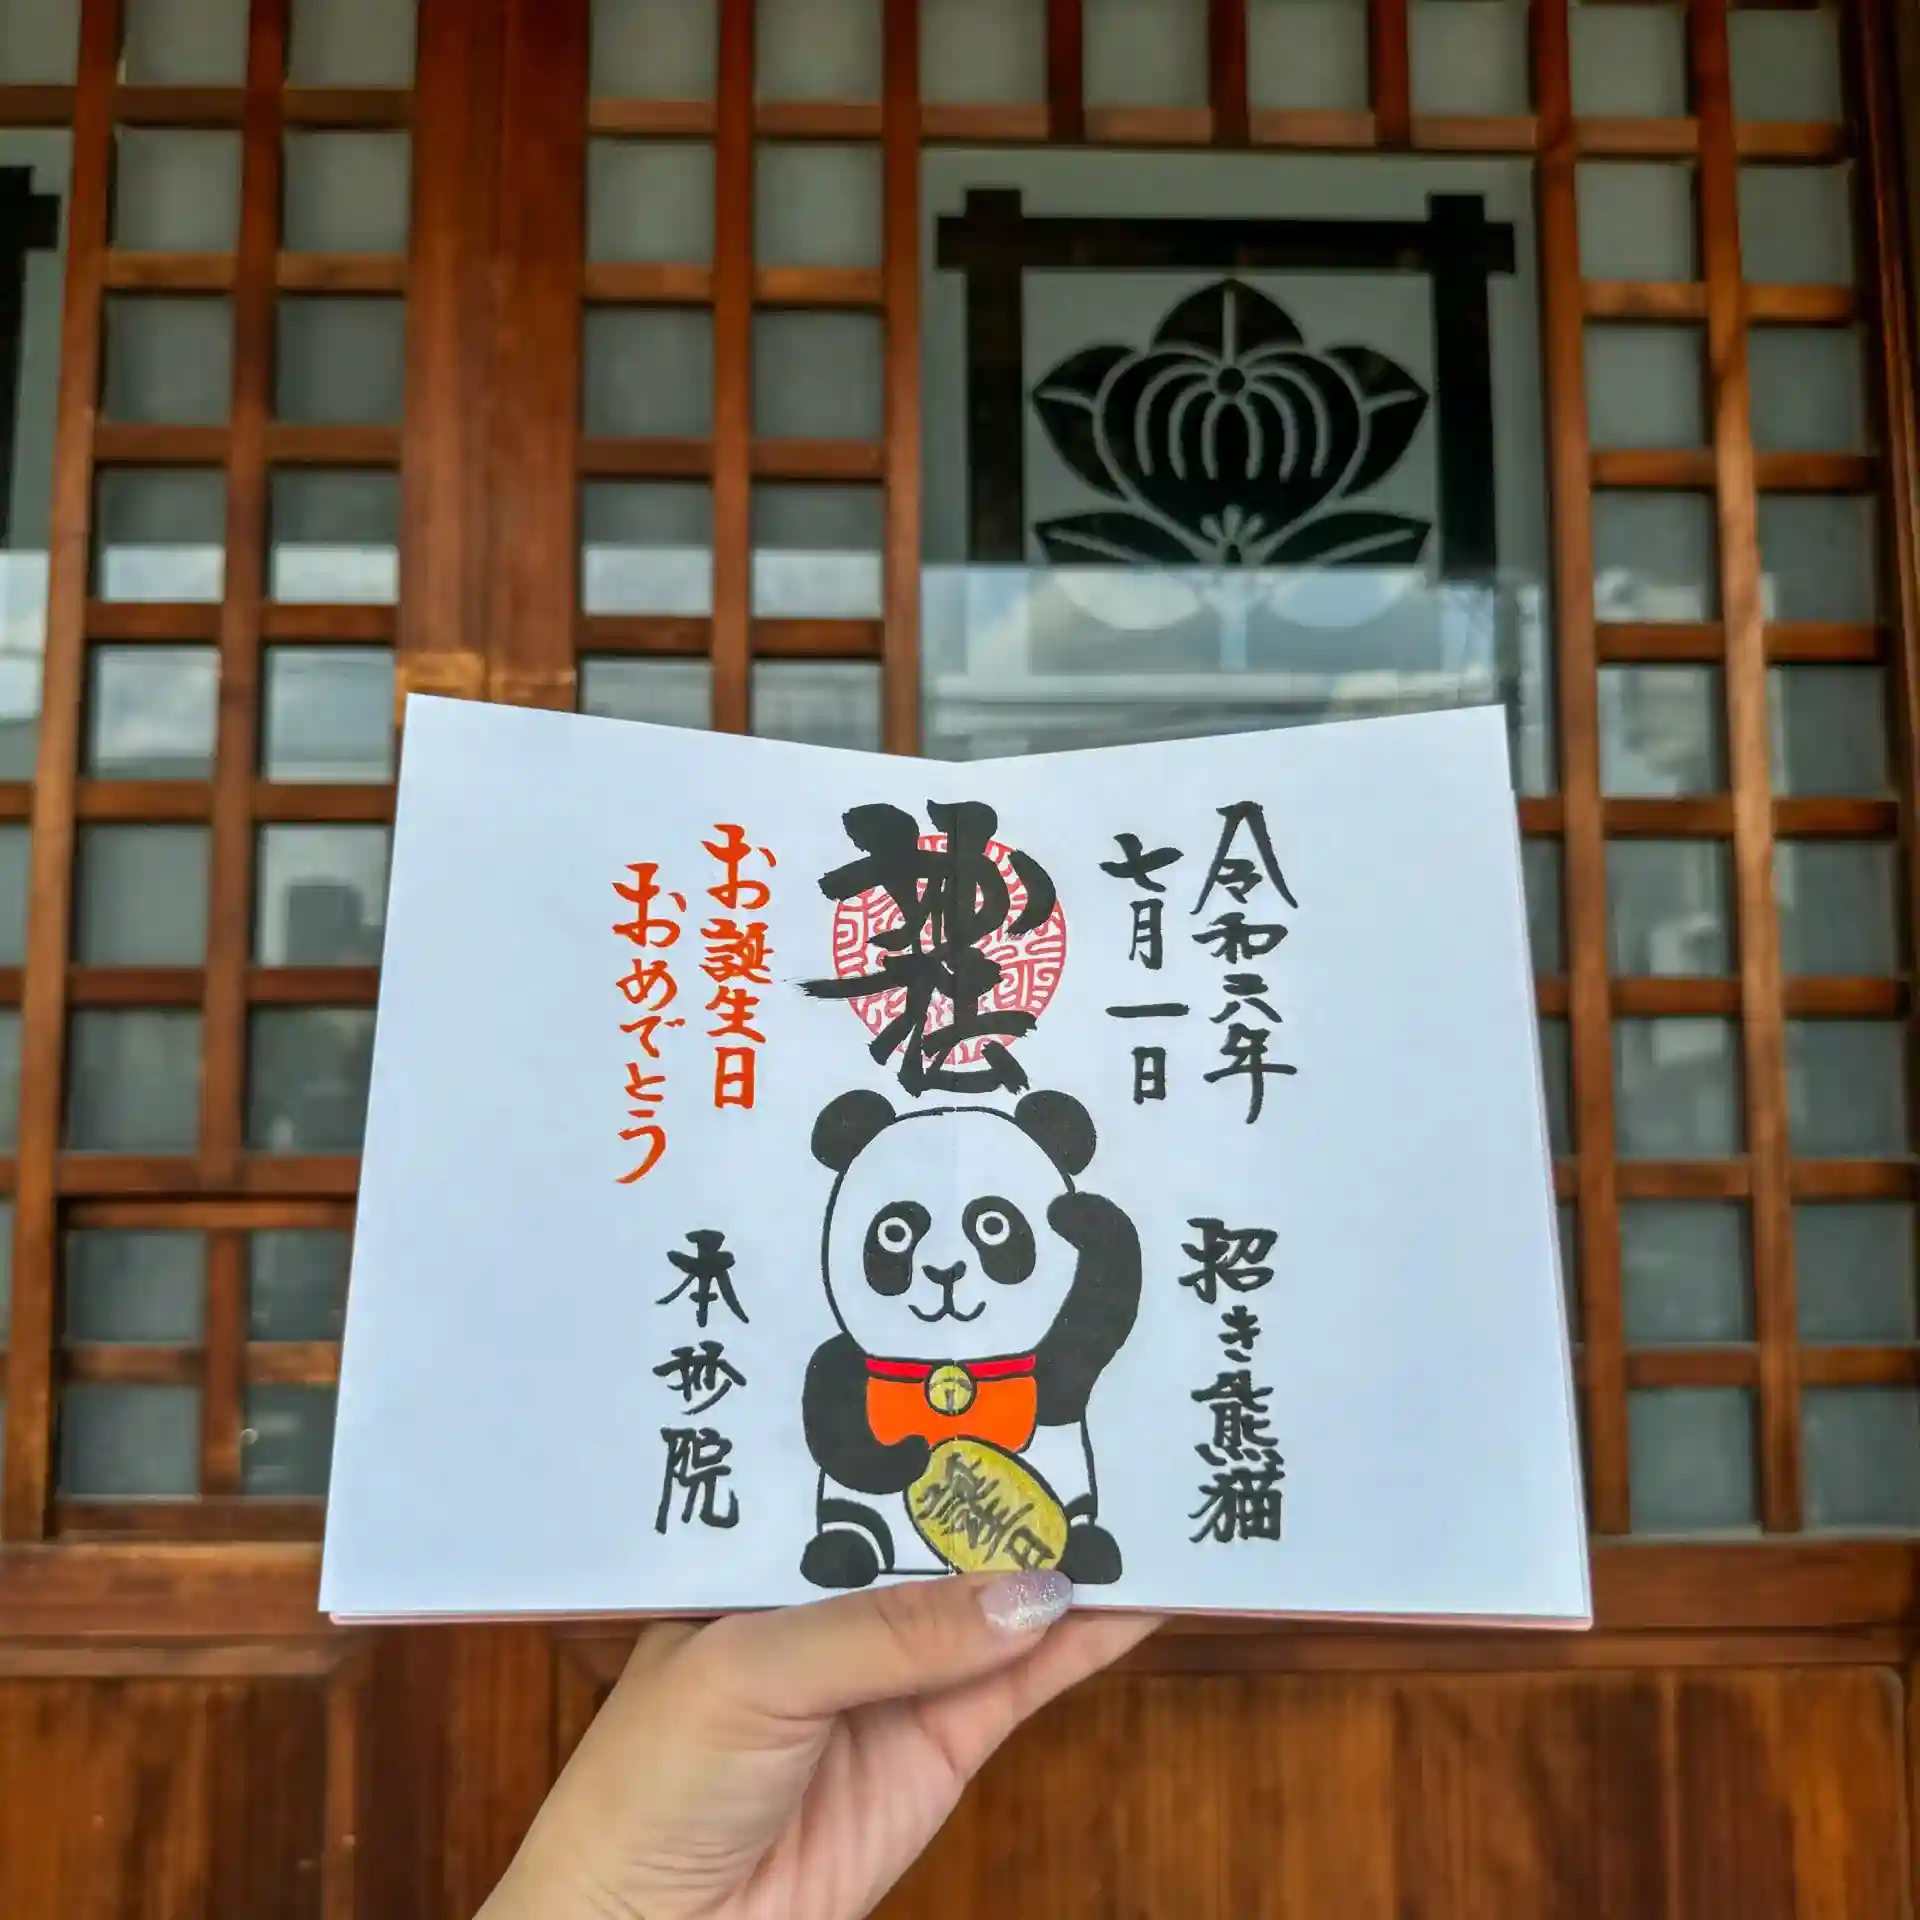 令和六年
七月一日
招き熊猫
妙法
お誕生日
おめでとう
本妙院
誕生日